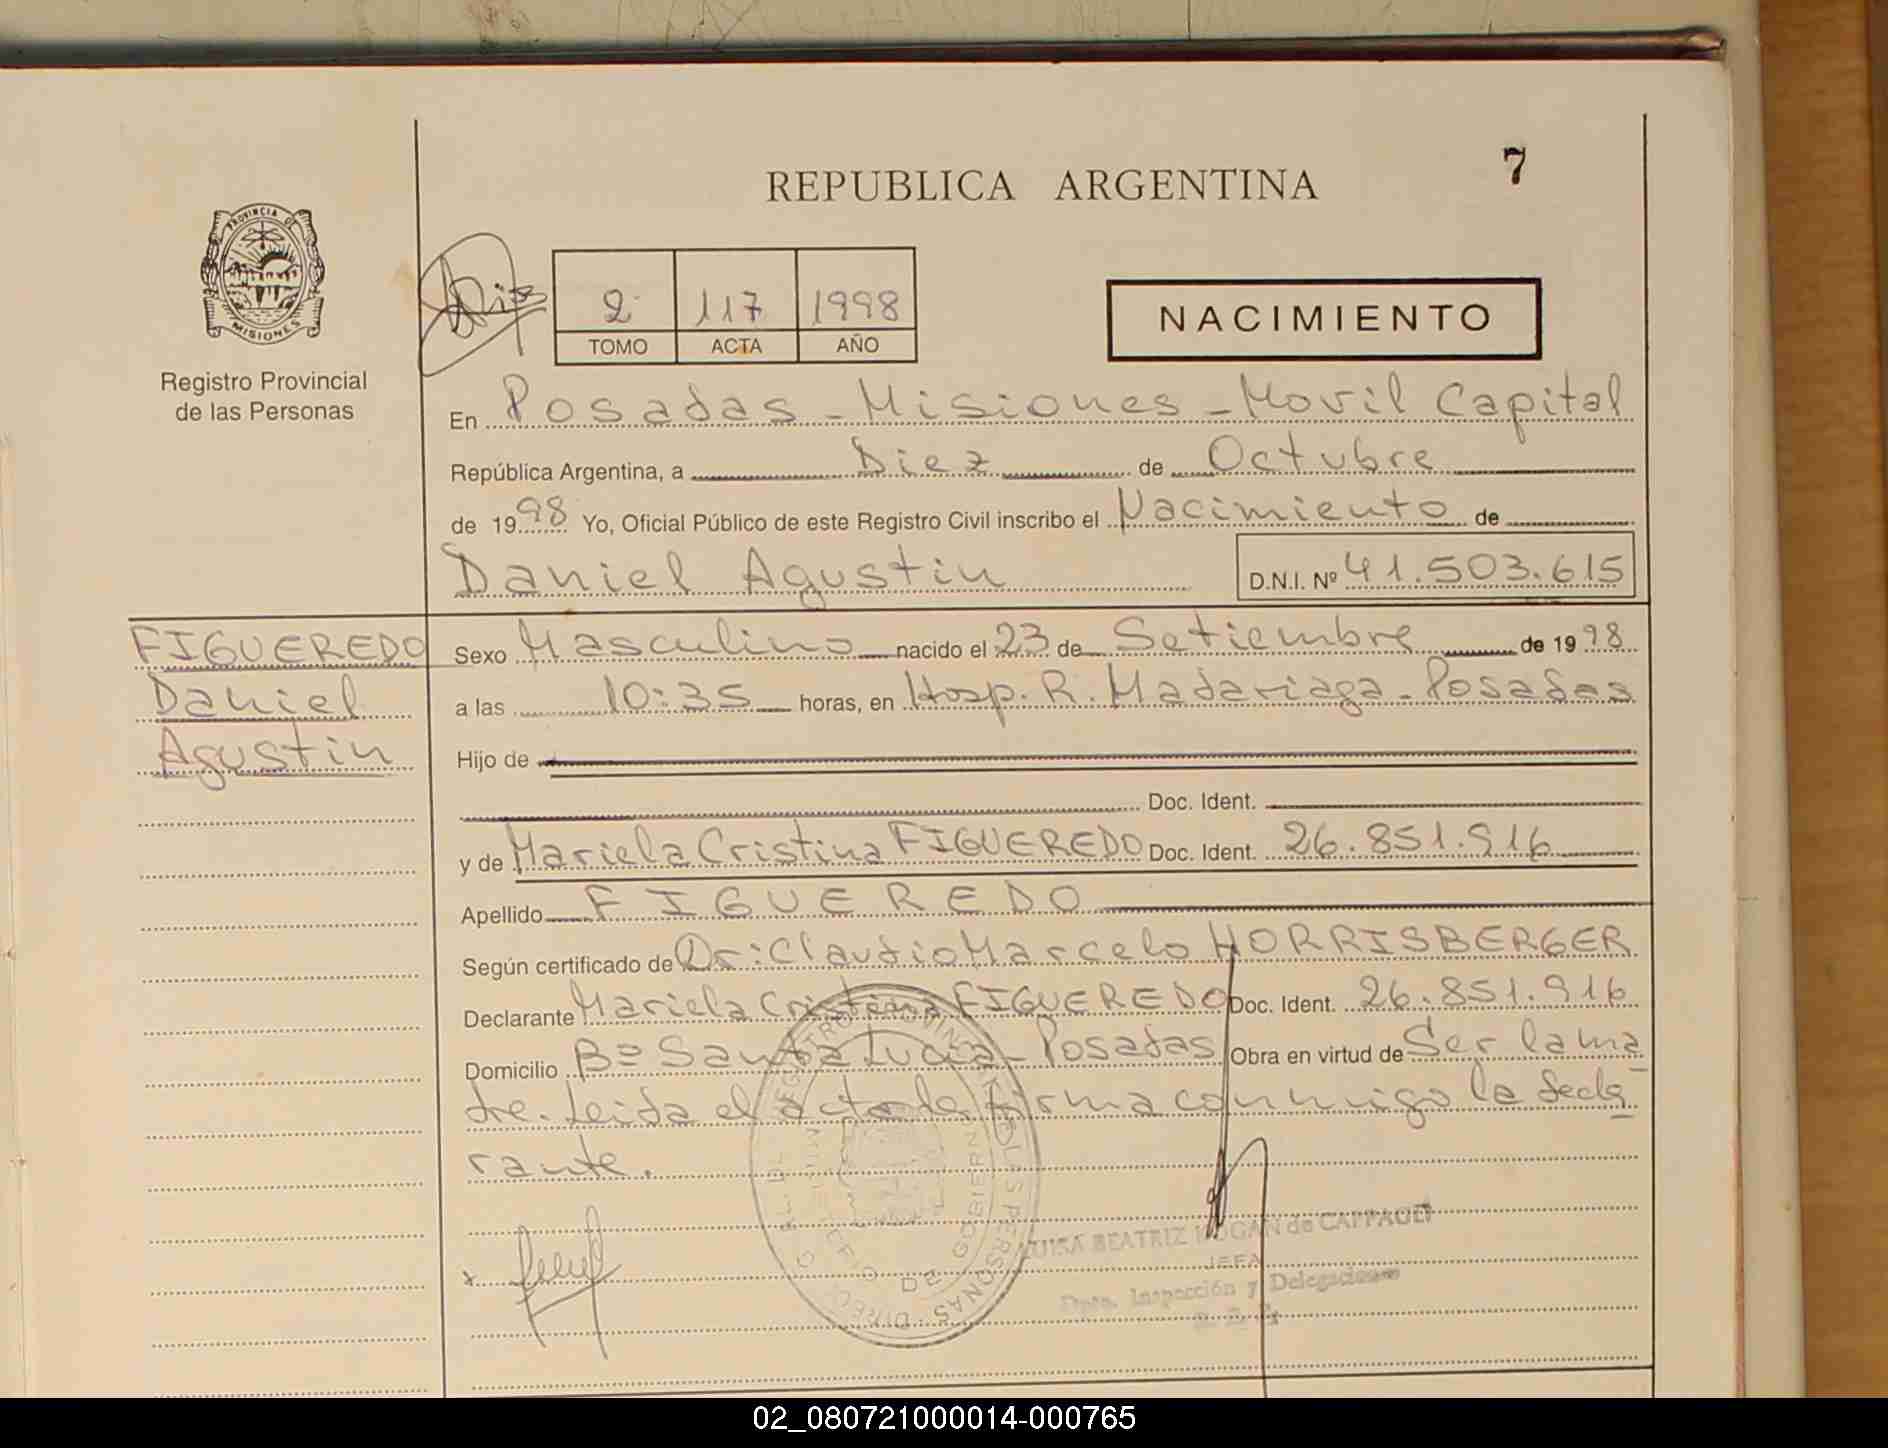 REPUBLICA ARGENTINA
7
PROVINCIA DE
MISIONES
Registro Provincial
de las Personas
2 117 1998
TOMO ACTA AÑO
NACIMIENTO
En Posadas - Misiones - Movil Capital
República Argentina, a Diez de Octubre
de 1998 Yo, Oficial Público de este Registro Civil inscribo el Nacimiento de
Daniel Agustin D.N.I. Nº 41.503.615
FIGUEREDO
Daniel
Agustin
Sexo Masculino nacido el 23 de Setiembre de 1998
a las 10:35 horas, en Hosp. R. Madariaga - Posadas
Hijo de
Doc. Ident.
y de Mariela Cristina FIGUEREDO Doc. Ident. 26.851.916
Apellido FIGUEREDO
Según certificado de Dr: Claudio Marcelo HORRISBERGER
Declarante Mariela Cristina FIGUEREDO Doc. Ident. 26.851.916
Domicilio Bº Santa Lucia - Posadas Obra en virtud de Ser la ma
dre. Leida el acta la firma conmigo la decla
rante.
LUISA BEATRIZ HOGAN de CAPPAGLI
JEFA
Dpto. Inspección y Delegaciones
02_080721000014-000765